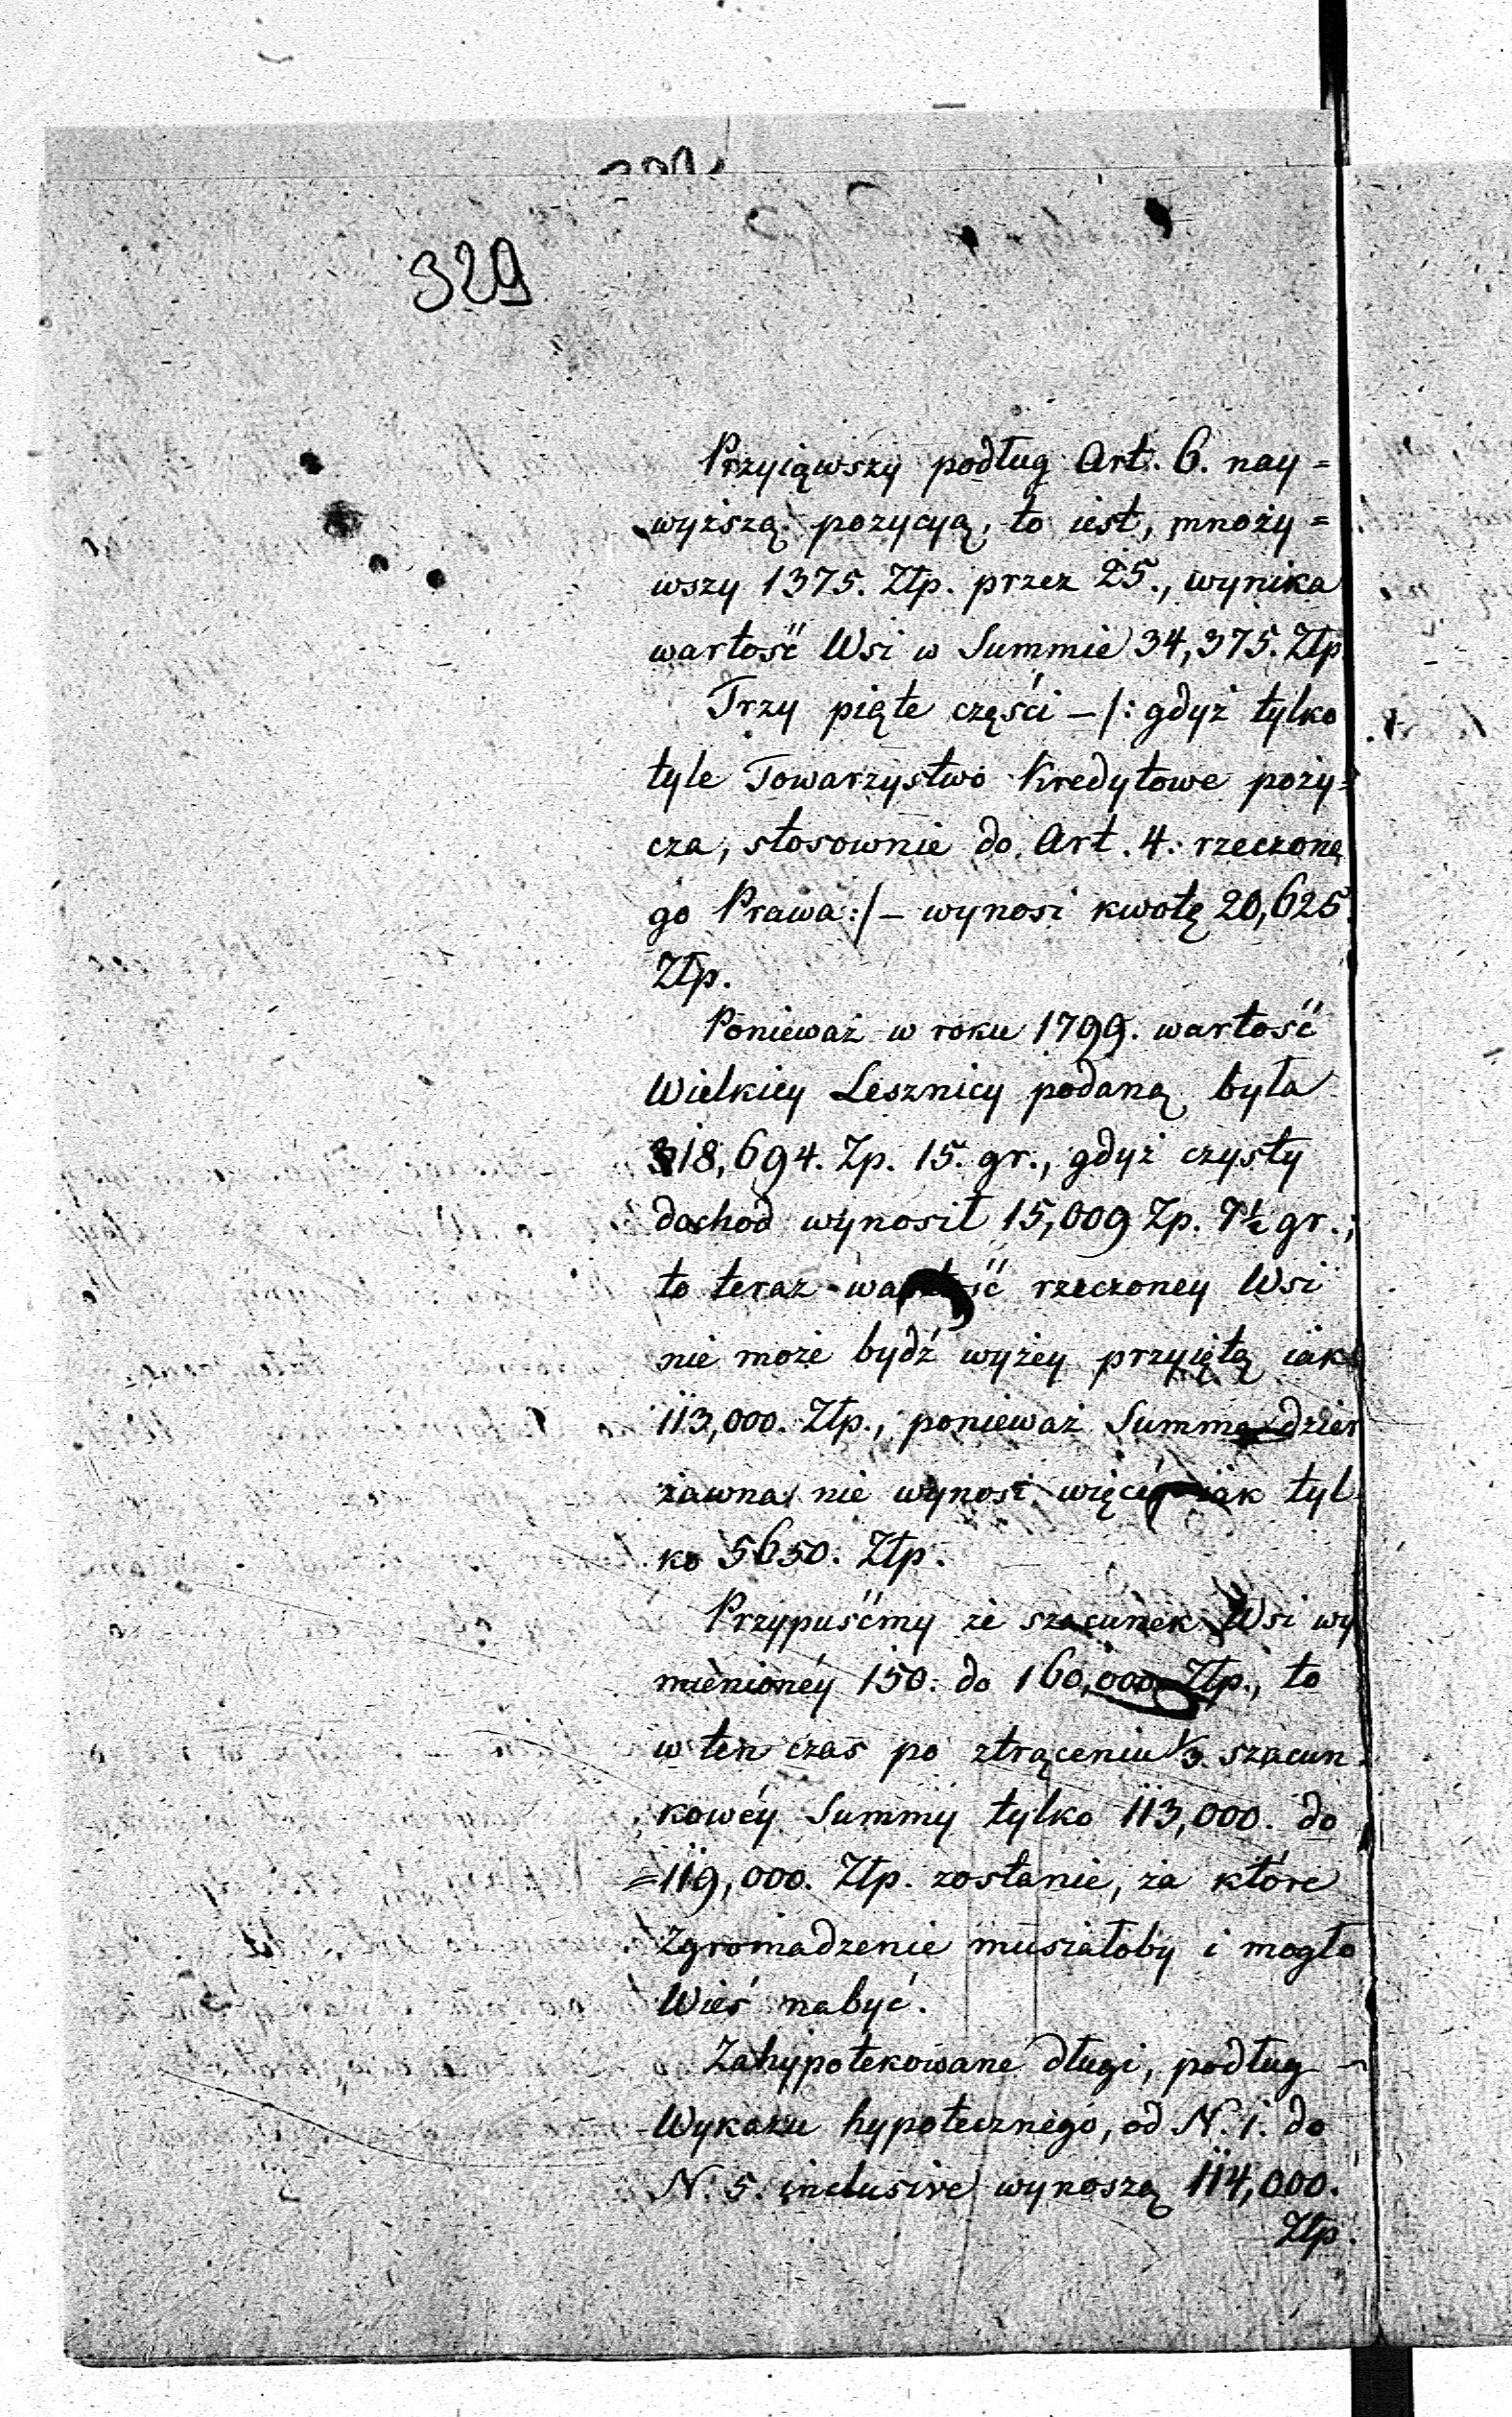 329
Przyiąwszy podług Art. 6. nay=
wyższą pozycyą, to iest, mnoży=
wszy 1375. Złp. przez 25., wynika
wartość Wsi w Summie 34,375. Złp
Trzy piąte części – /: gdyż tylko
tyle Towarzystwo Kredytowe poży=
cza, stosownie do Art. 4. rzeczone
go Prawa :/ – wynosi kwotę 20,625.
Złp.
Ponieważ w roku 1799. wartość
Wielkiey Lesznicy podaną była
318,694. Zp. 15. gr., gdyż czysty
dochod wynosił 15,009 Zp. 7½ gr.;
to teraz wartość rzeczoney Wsi
nie może bydź wyżey przyiętą iak
113,000. Złp., ponieważ Summa dzier
żawna nie wynosi więcéy iak tyl
ko 5650. Złp.
Przypuśćmy że szacunek Wsi wy
mienionéy 150. do 160,000. Złp., to
w ten czas po ztrąceniu ⅓. szacun
kowéy Summy tylko 113,000. do
=119,000. Złp. zostanie, za które
Zgromadzenie musiałoby i mogło
Wieś nabyć.
Zahypotekowane długi, podług
Wykazu hypotecznego, od N. 1. do
N. 5. inclusive wynoszą 114,000.
Złp.